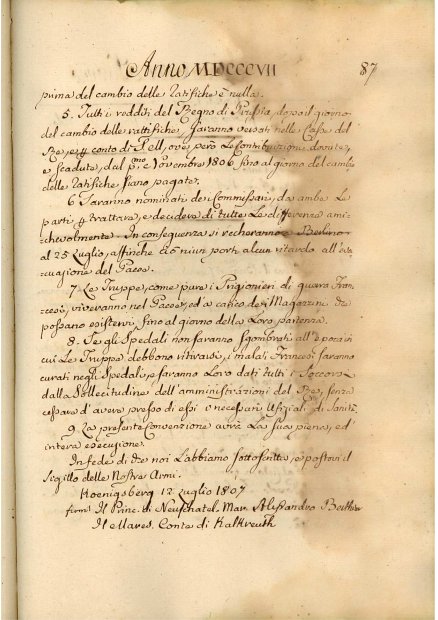 Anno MDCCCVII 87
prima del cambio delle Ratifiche è nulla.
5. Tutti i redditi del Regno di Prussia, dopo il giorno
del cambio delle rattifiche, saranno versati nelle Casse del
Re, e p conto di Tell, ove però le Contribuzioni dovute,
e scadute, dal pmo e Novembre 1806 sino al giorno del cambio
delle Ratifiche siano pagate.
6 Saranno nominati de Commissarj da ambe le
parti p trattare, e decidere di tutte le differenze ami=
chevolmente. In conseguenza si recheranno a Berlino
al 25 Luglio, affinche ciò niun porti alcun ritardo all'eva=
cuazione del Paese.
7. Le Truppe, come pure i Prigionieri di guerra Fran=
cesi, viveranno nel Paese, ed a carico de i Magazzini che
possano esistervi, sino al giorno della loro partenza.
8. Se gli Spedali non saranno sgombrati all'epoca in
cui le Truppe debbono ritirarsi, i malati Francesi saranno
curati negli Spedali, e saranno loro dati tutti i Soccorsi
dalla Sollecitudine dell'amministrazioni del Re, senza
cessare d'avere presso di essi i necessarj Uffiziali di Sanità.
9. La presente Convenzione avrà la sua piena, ed
intera esecuzione.
In fede di che noi l'abbiamo sottoscritta, e postovi il
Sigillo delle Nostre Armi.
Koenigsberg 12 Luglio 1807
firm. Il Princ. di Neuschatel. Mar. Alessandro Berthier
Il Mares. Conte di Kalkreuth